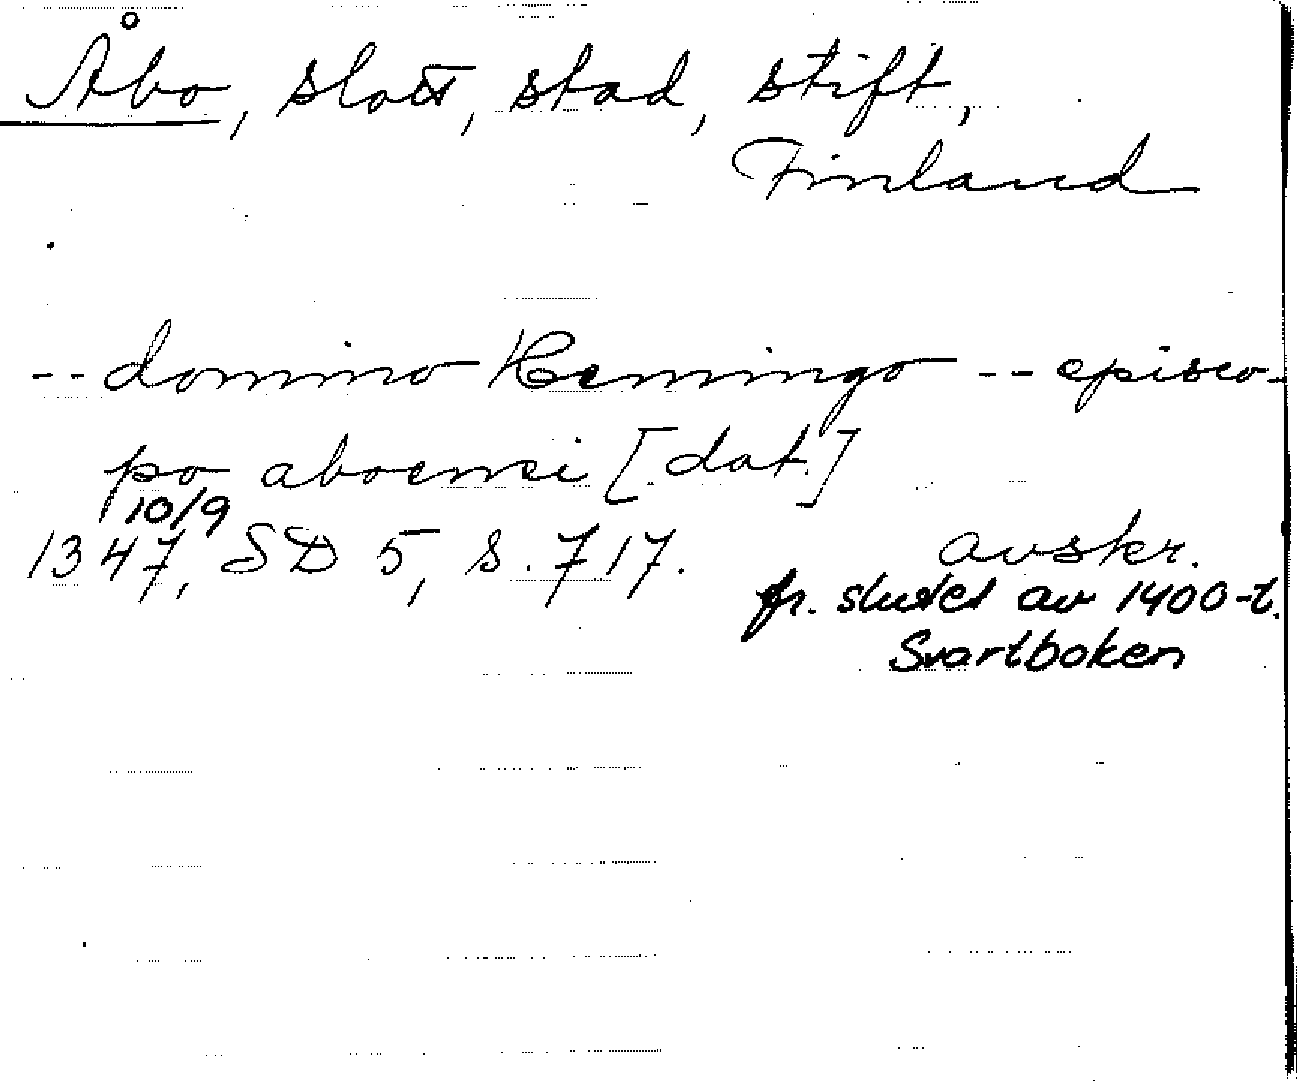 Åbo, slott, stad, stift,
Finland
-- domino Hemingo -- episco-
po aboensi [dat.]
10/9
1347, SD 5, s. 717. avskr.
fr. slutet av 1400-t.
Svartboken